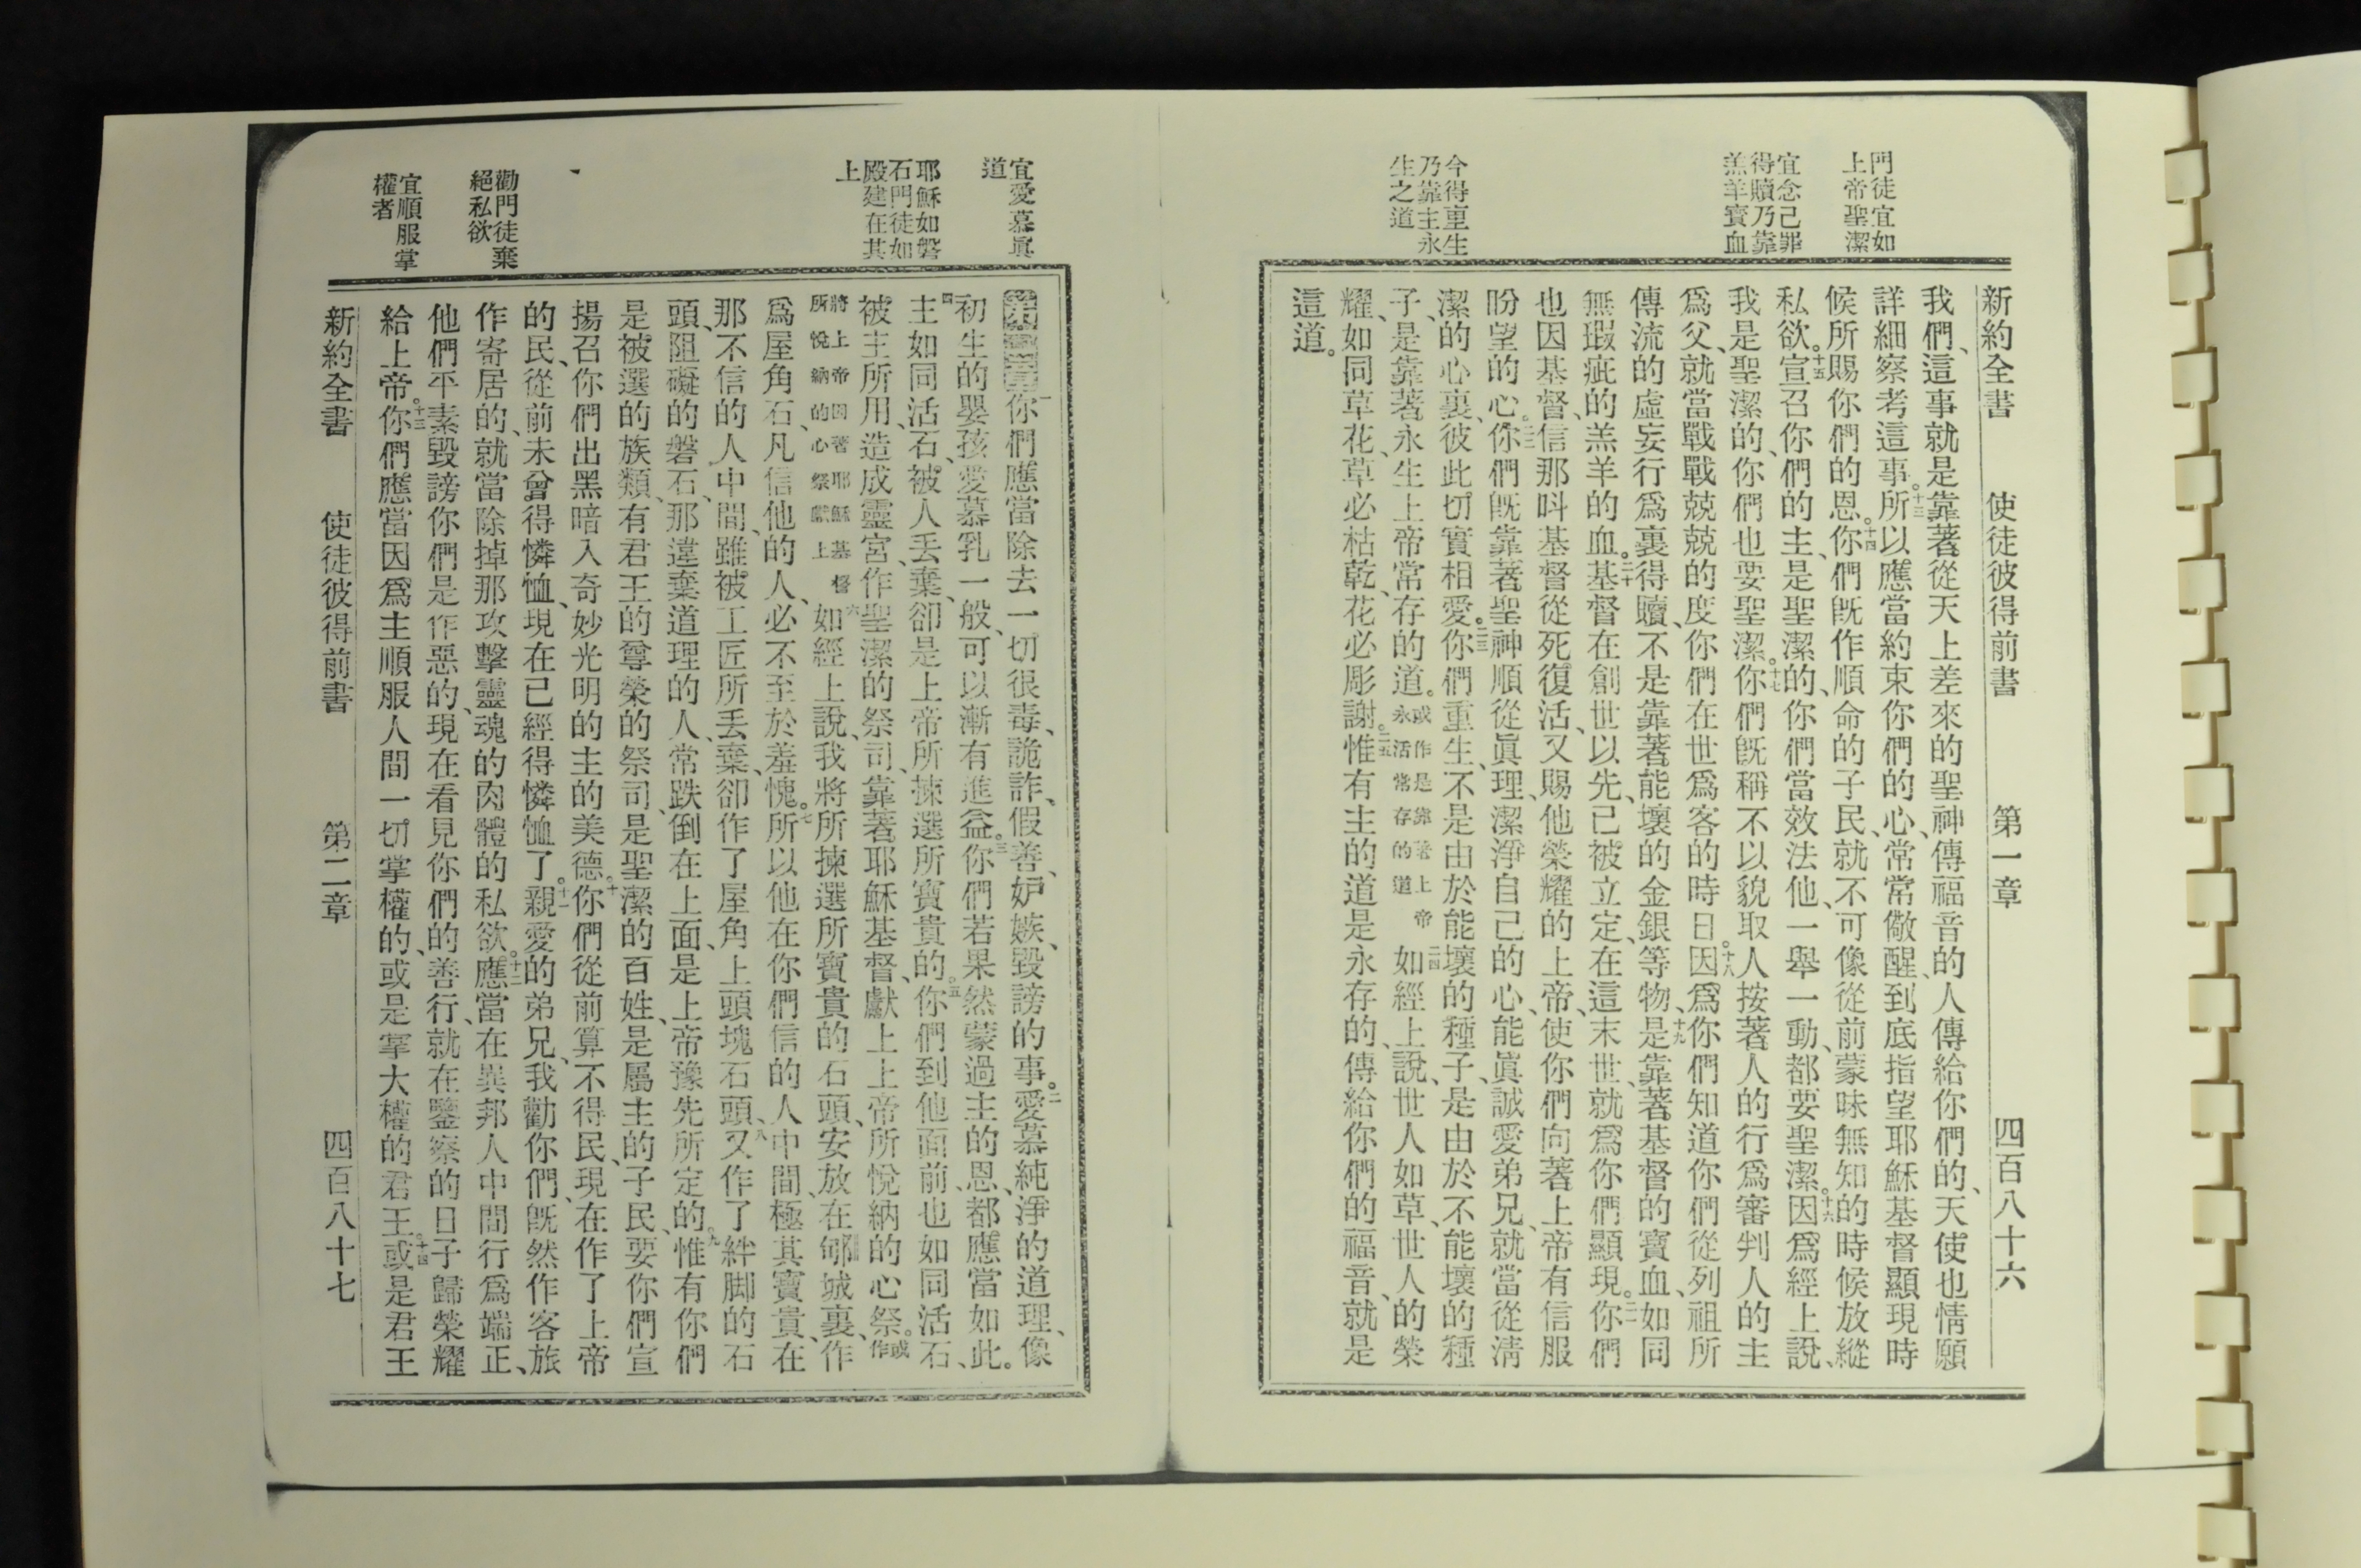 門徒宜如
上帝聖潔
宜念己罪
得贖乃靠
羔羊寶血
今得重生
乃靠主永
生之道
新約全書 使徒彼得前書 第一章 四百八十六
我們、這事就是靠著從天上差來的聖神、傳福音的人傳給你們的、天使也情願
詳細察考這事。十三所以應當約束你們的心、常常儆醒、到底指望耶穌基督顯現時
候所賜你們的恩。十四你們旣作順命的子民、就不可像從前蒙昧無知的時候放縱
私欲。十五宣召你們的主、是聖潔的、你們當效法他、一舉一動、都要聖潔。十六因爲經上說、
我是聖潔的、你們也要聖潔。十七你們旣稱不以貌取人按著人的行爲審判人的主
爲父、就當戰戰兢兢的度你們在世爲客的時日。十八因爲你們知道你們從列祖所
傳流的虛妄行爲裏得贖、不是靠著能壞的金銀等物、十九是靠著基督的寶血、如同
無瑕疵的羔羊的血。二十基督在創世以先、已被立定、在這末世、就爲你們顯現。二一你們
也因基督、信那呌基督從死復活、又賜他榮耀的上帝、使你們向著上帝有信服
盼望的心。二二你們旣靠著聖神順從眞理、潔淨自己的心、能眞誠愛弟兄、就當從淸
潔的心裏、彼此切實相愛。二三你們重生、不是由於能壞的種子、是由於不能壞的種
子、是靠著永生上帝常存的道。或作是靠著上帝永活常存的道二四如經上說、世人如草、世人的榮
耀、如同草花、草必枯乾、花必彫謝。二五惟有主的道是永存的、傳給你們的福音、就是
這道。
宜愛慕眞
道
耶穌如磐
石門徒如
殿建在其
上
勸門徒棄
絕私欲
宜順服掌
權者
第二章一你們應當除去一切很毒、詭詐、假善、妒嫉、毀謗的事。二愛慕純淨的道理、像
初生的嬰孩、愛慕乳一般、可以漸有進益。三你們若果然蒙過主的恩、都應當如此。
四主如同活石、被人丟棄、卻是上帝所揀選所寶貴的。五你們到他面前、也如同活石、
被主所用、造成靈宮、作聖潔的祭司、靠著耶穌基督、獻上上帝所悅納的心祭。或作
將上帝因著耶穌基督所悅納的心祭獻上六如經上說、我將所揀選所寶貴的石頭、安放在郇城裏、作
爲屋角石、凡信他的人、必不至於羞愧。七所以他在你們信的人中間、極其寶貴、在
那不信的人中間、雖被工匠所丟棄、卻作了屋角上頭塊石頭、八又作了絆脚的石
頭、阻礙的磐石、那違棄道理的人、常跌倒在上面、是上帝豫先所定的。九惟有你們
是被選的族類、有君王的尊榮的祭司、是聖潔的百姓、是屬主的子民、要你們宣
揚召你們出黑暗入奇妙光明的主的美德。十你們從前算不得民、現在作了上帝
的民、從前未曾得憐恤、現在已經得憐恤了。十一親愛的弟兄、我勸你們、旣然作客旅
作寄居的、就當除掉那攻擊靈魂的肉體的私欲。十二應當在異邦人中間行爲端正、
他們平素毀謗你們是作惡的、現在看見你們的善行、就在鑒察的日子歸榮耀
給上帝。十三你們應當因爲主順服人間一切掌權的、或是掌大權的君王。十四或是君王
新約全書 使徒彼得前書 第二章 四百八十七